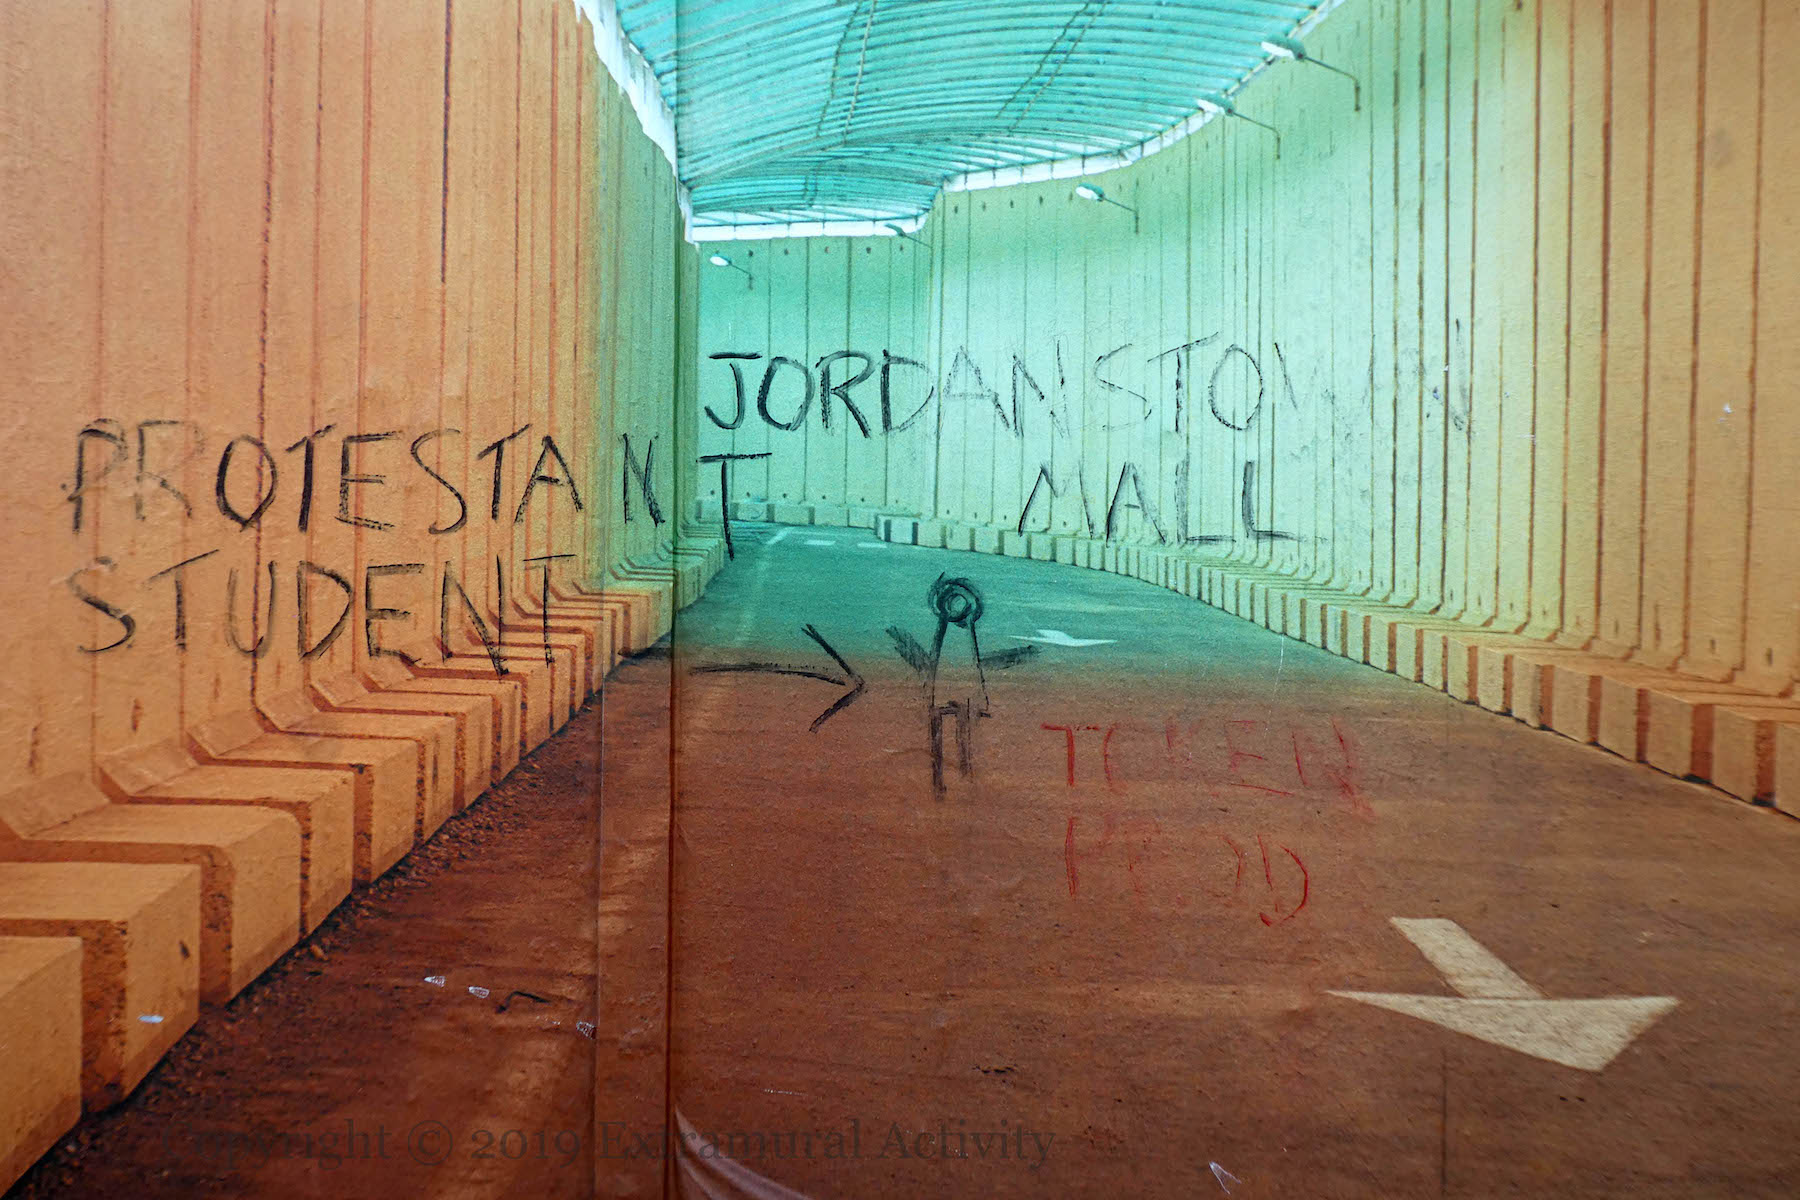 JORDANSTOWN
MALL
PROTESTANT
STUDENT
TOKEN
PROD
Copyright © 2019 Extramural Activity